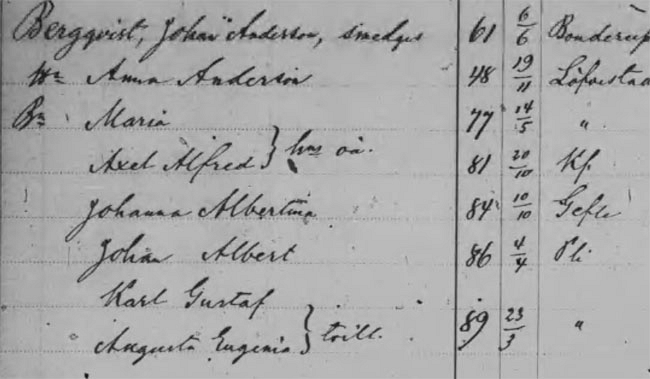 Bergqvist, Johan Anderson, smedges 61 6/6 Bonderup
Hu Anna Anderson 48 19/11 Löfvestad
Bn Maria 77 14/5 "
Axel Alfred } hns oä. 81 20/10 Kp.
Johanna Albertina 84 10/10 Gefle
Johan Albert 86 4/4
Karl Gustaf
Augusta Eugenia } tvill. 89 23/3 "